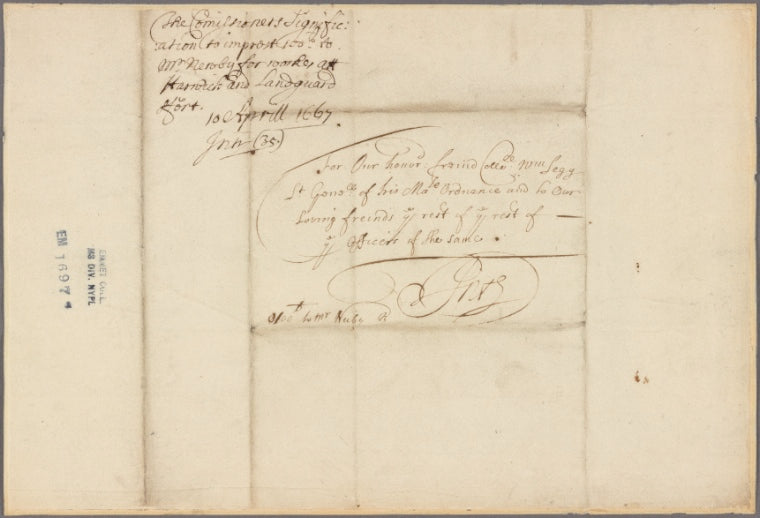 The Comissioners Signific:
:ation to imprest 100ˡⁱ to
Mʳ Newby for workes att
Harwich and Landguard
ffort.
10 Aprill 1667
Inn (35)
For Our honoʳ: freind Colloⁿˡ Wm Legg
Lᵗ Genoˡˡ of his Maᵗⁱᵉ Ordnance and to Our
Loving freinds yᵉ rest of yᵉ rest of
yᵉ officers of the same
to Mr Nuby
EMMET COLL.
MS DIV. NYPL
EM 1697 4